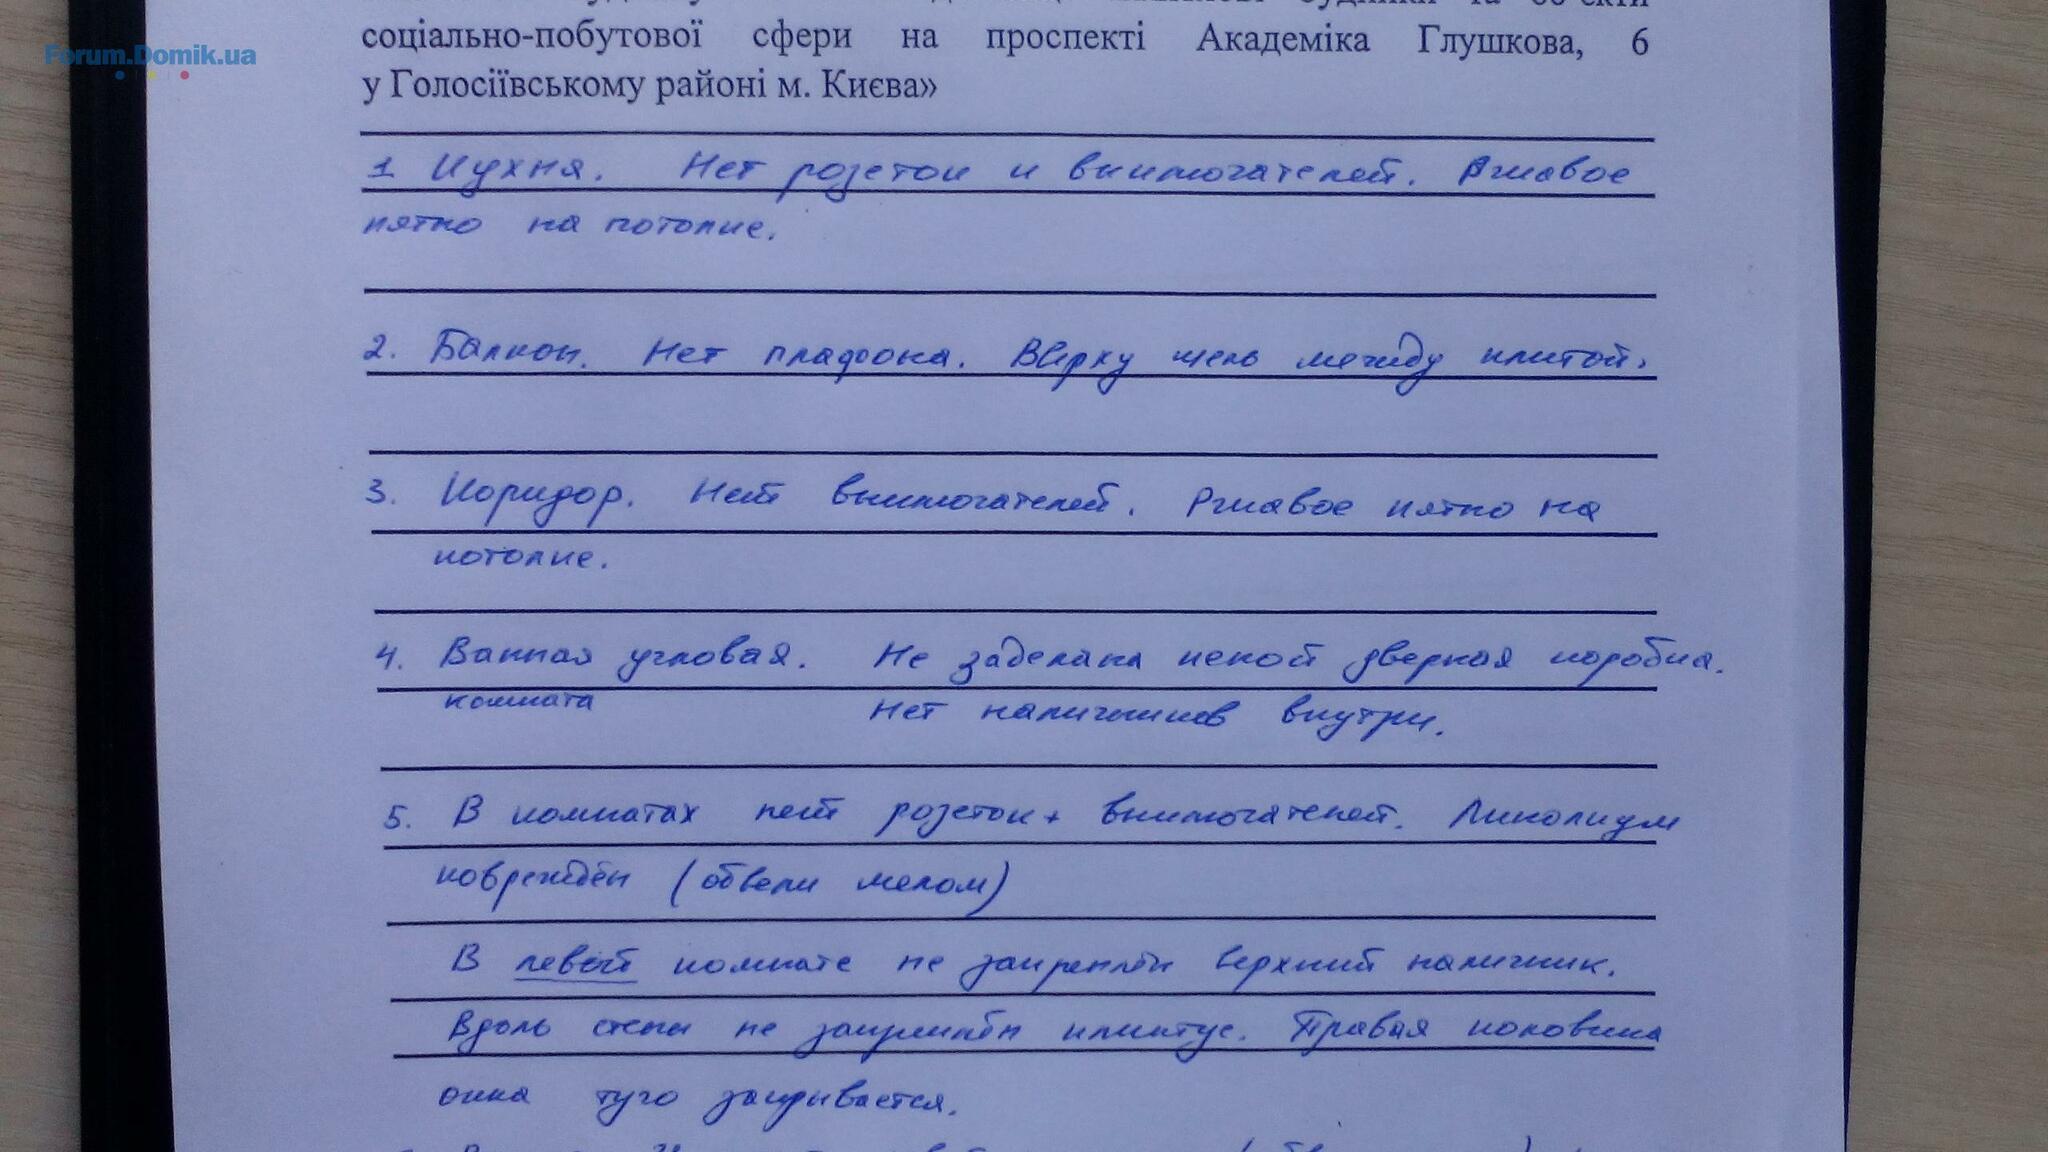 Forum.Domik.ua
будинки та об'єкти
соціально-побутової сфери на проспекті Академіка Глушкова, 6
у Голосіївському районі м. Києва»
1 Кухня. Нет розеток и выключателей. Ржавое
пятно на потолке.
2. Балкон. Нет плафона. Вверху щель между плитой.
3. Коридор. Нет выключателей. Ржавое пятно на
потолке.
4. Ванная угловая. Не заделана пеной дверная коробка.
комната Нет наличников внутри.
5. В комнатах нет розеток+ выключателей. Линолиум
повреждён (обвели мелом)
В левой комнате не закреплён верхний наличник.
Вдоль стены не закреплён плинтус. Правая половина
окна туго закрывается.